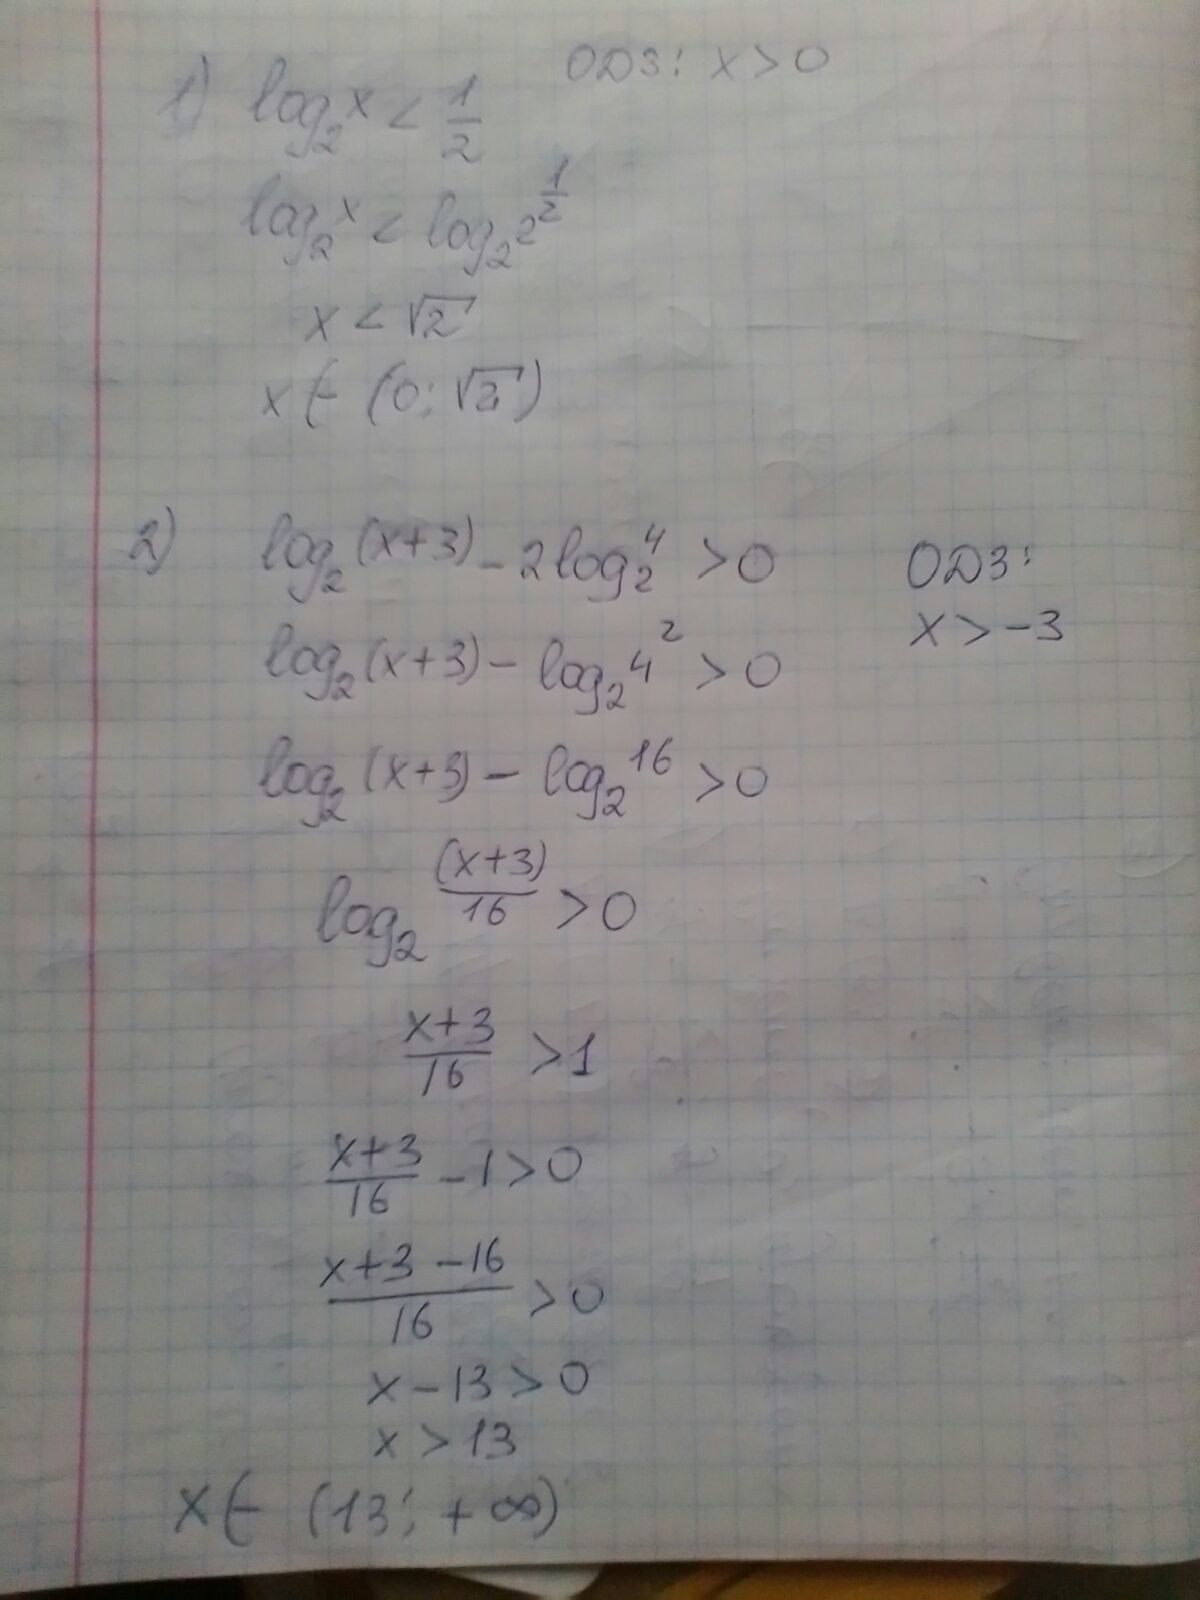 1) log₂x < 1/2 ОДЗ: x > 0
log₂x < log₂2^(1/2)
x < √2
x ∈ (0; √2)
2) log₂(x+3) - 2log₂4 > 0 ОДЗ:
x > -3
log₂(x+3) - log₂4² > 0
log₂(x+3) - log₂16 > 0
log₂ (x+3)/16 > 0
x+3/16 > 1
x+3/16 - 1 > 0
x+3-16/16 > 0
x - 13 > 0
x > 13
x ∈ (13; +∞)